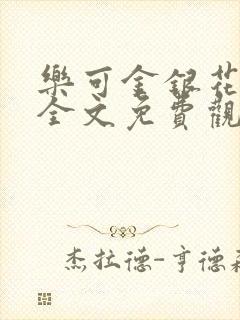 樂可金銀花
全文免費觀
杰拉德-亨德森